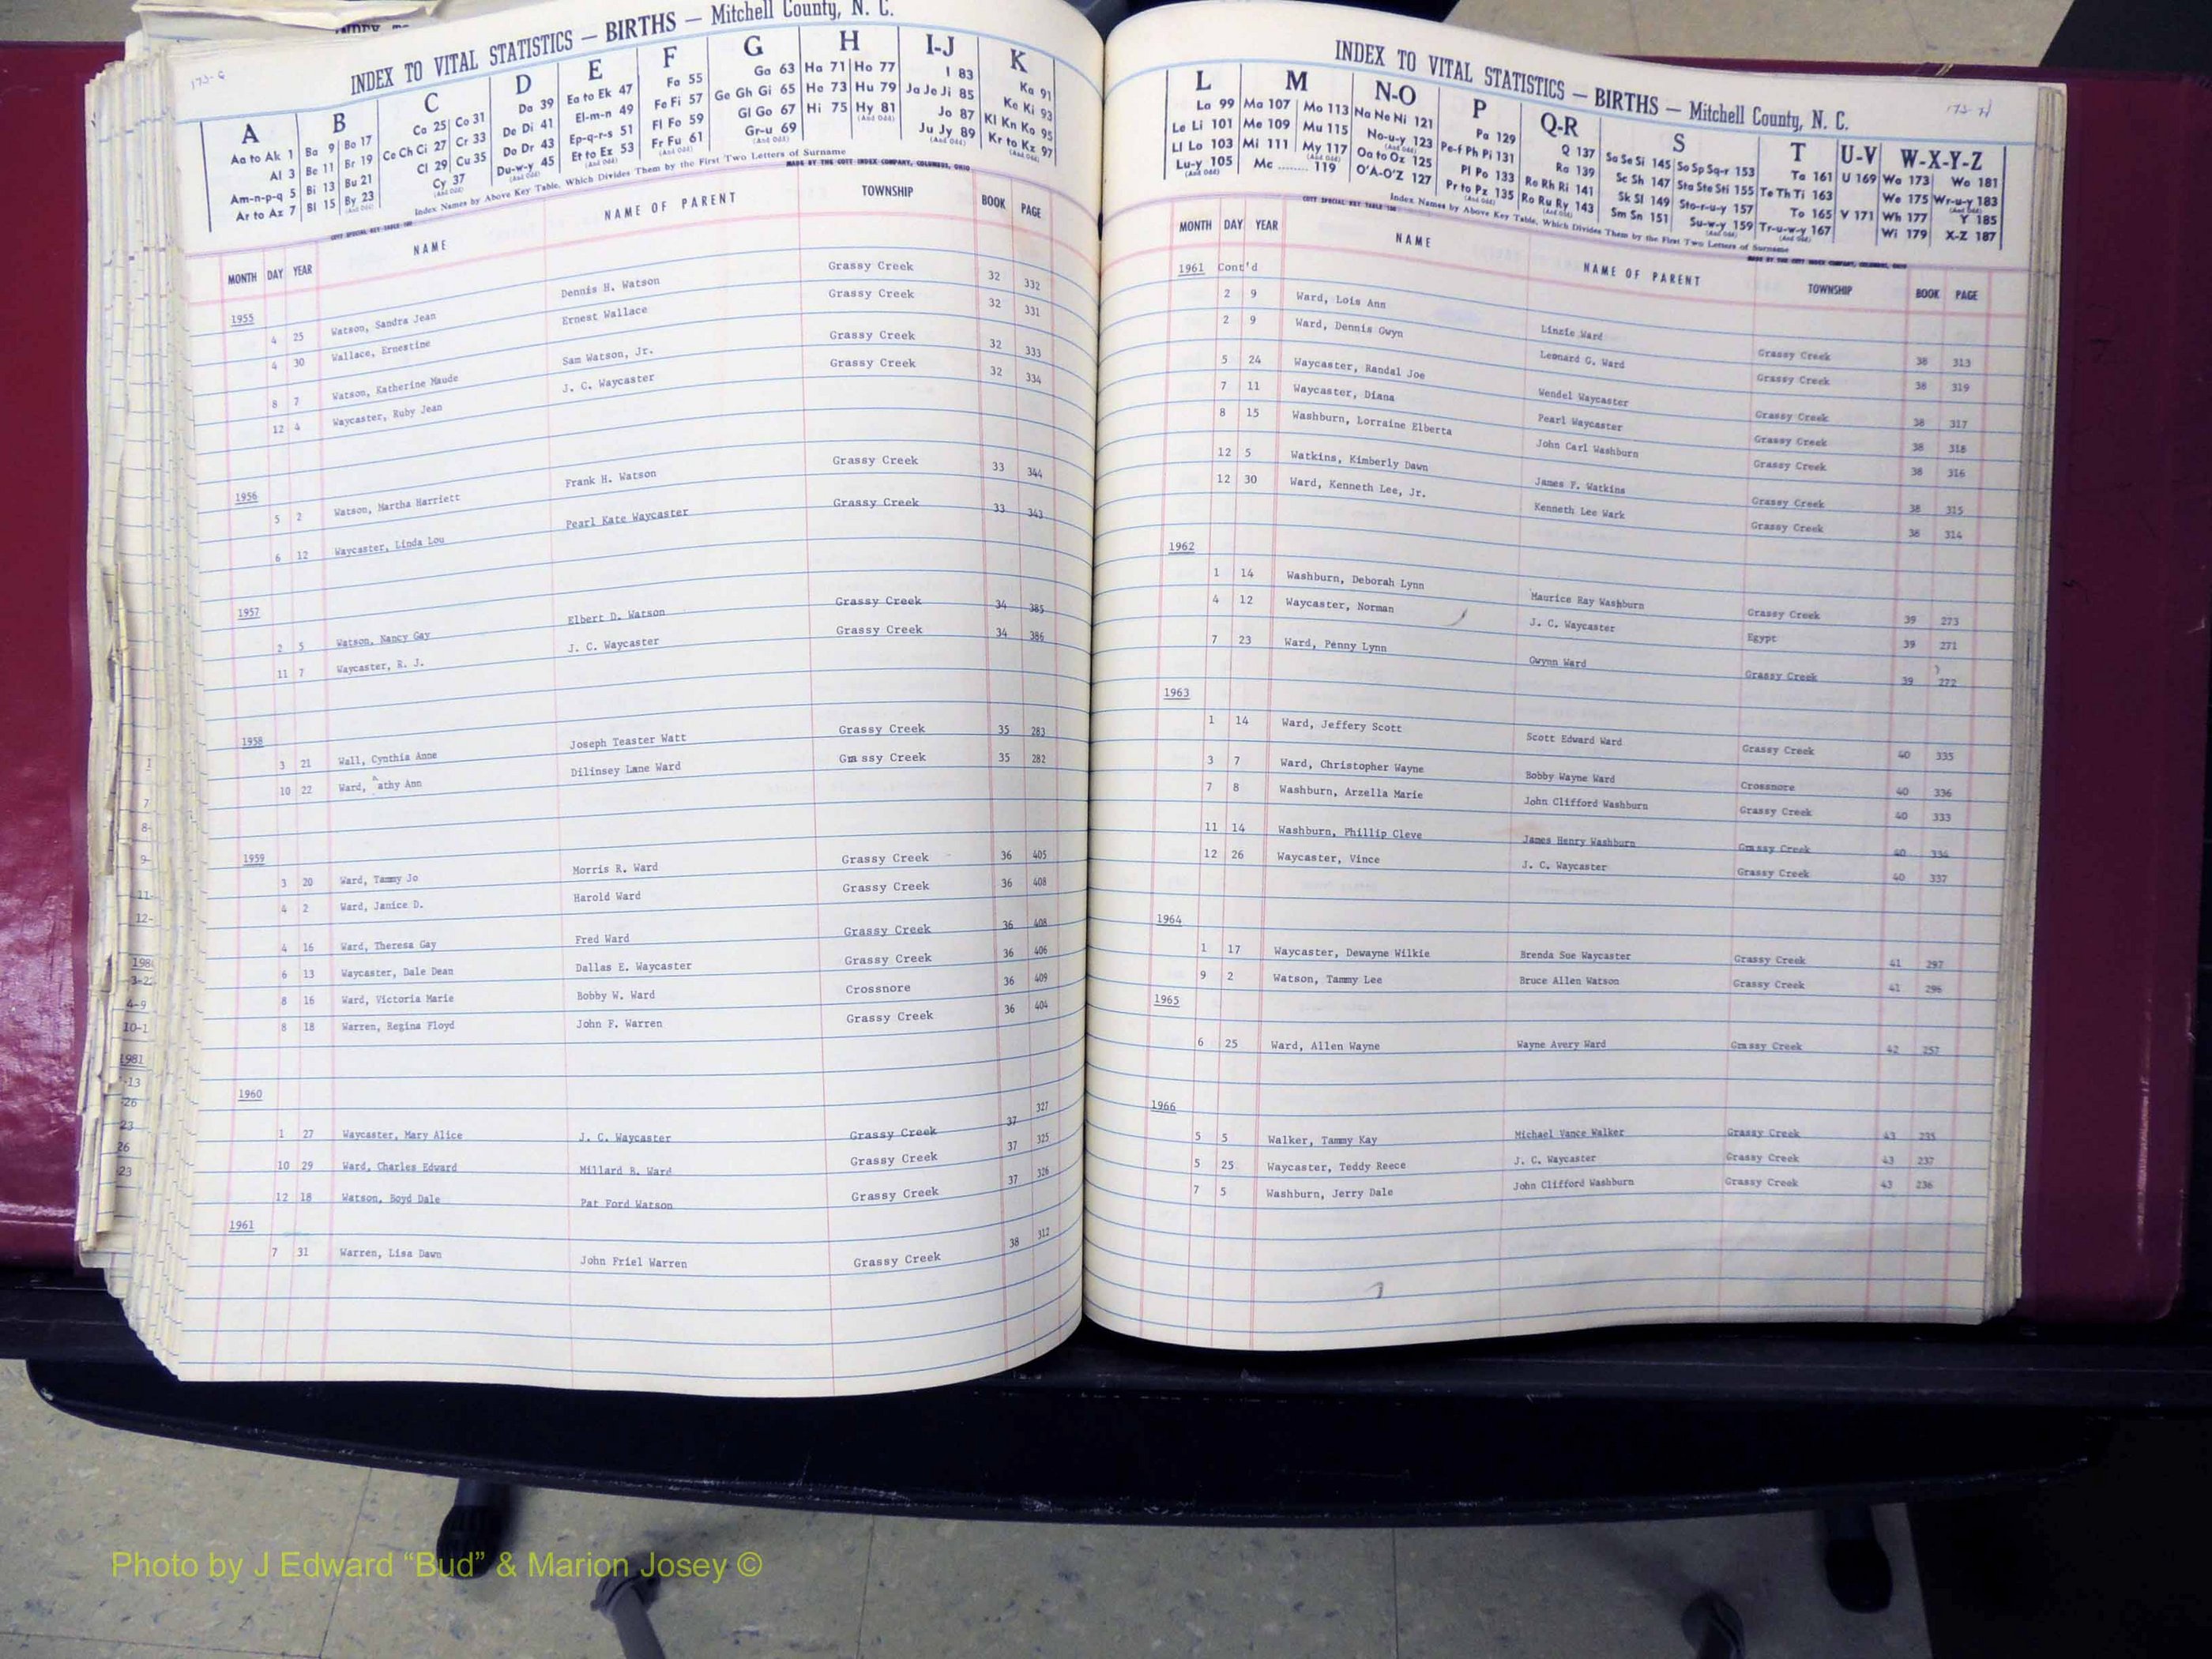 173-G
INDEX TO VITAL STATISTICS — BIRTHS — Mitchell County, N. C.
A B C D E F G H I-J K
Aa to Ak 1 Ba 9 Bo 17 Ca 25 Co 31 Da 39 Ea to Ek 47 Fa 55 Ga 63 Ha 71 Ho 77 I 83 Ka 91
Al 3 Be 11 Br 19 Ce Ch Ci 27 Cr 33 De Di 41 El-m-n 49 Fe Fi 57 Ge Gh Gi 65 He 73 Hu 79 Ja Je Ji 85 Ke Ki 93
Am-n-p-q 5 Bi 13 Bu 21 Cl 29 Cu 35 Do Dr 43 Ep-q-r-s 51 Fl Fo 59 Gl Go 67 Hi 75 Hy 81 Jo 87 Kl Kn Ko 95
Ar to Az 7 Bl 15 By 23 Cy 37 Du-w-y 45 Et to Ez 53 Fr Fu 61 Gr-u 69 Ju Jy 89 Kr to Kz 97
Index Names by Above Key Table, Which Divides Them by the First Two Letters of Surname
MADE BY THE COTT INDEX COMPANY, COLUMBUS, OHIO
MONTH DAY YEAR NAME NAME OF PARENT TOWNSHIP BOOK PAGE
1955
4 25 Watson, Sandra Jean Dennis H. Watson Grassy Creek 32 332
4 30 Wallace, Ernestine Ernest Wallace Grassy Creek 32 331
8 7 Watson, Katherine Maude Sam Watson, Jr. Grassy Creek 32 333
12 4 Waycaster, Ruby Jean J. C. Waycaster Grassy Creek 32 334
1956
5 2 Watson, Martha Harriett Frank H. Watson Grassy Creek 33 344
6 12 Waycaster, Linda Lou Pearl Kate Waycaster Grassy Creek 33 343
1957
2 5 Watson, Nancy Gay Elbert D. Watson Grassy Creek 34 385
11 7 Waycaster, R. J. J. C. Waycaster Grassy Creek 34 386
1958
3 21 Wall, Cynthia Anne Joseph Teaster Watt Grassy Creek 35 283
10 22 Ward, athy Ann Dilinsey Lane Ward Grassy Creek 35 282
1959
3 20 Ward, Tammy Jo Morris R. Ward Grassy Creek 36 405
4 2 Ward, Janice D. Harold Ward Grassy Creek 36 408
4 16 Ward, Theresa Gay Fred Ward Grassy Creek 36 408
6 13 Waycaster, Dale Dean Dallas E. Waycaster Grassy Creek 36 406
8 16 Ward, Victoria Marie Bobby W. Ward Crossnore 36 409
8 18 Warren, Regina Floyd John F. Warren Grassy Creek 36 404
1960
1 27 Waycaster, Mary Alice J. C. Waycaster Grassy Creek 37 327
10 29 Ward, Charles Edward Millard B. Ward Grassy Creek 37 325
12 18 Watson, Boyd Dale Pat Ford Watson Grassy Creek 37 326
1961
7 31 Warren, Lisa Dawn John Friel Warren Grassy Creek 38 312
173-H
INDEX TO VITAL STATISTICS — BIRTHS — Mitchell County, N. C.
L M N-O P Q-R S T U-V W-X-Y-Z
La 99 Ma 107 Mo 113 Na Ne Ni 121 Pa 129 Q 137 Sa Se Si 145 So Sp Sq-r 153 Ta 161 U 169 Wa 173 Wo 181
Le Li 101 Me 109 Mu 115 No-u-y 123 Pe-f Ph Pi 131 Ra 139 Sc Sh 147 Sta Ste Sti 155 Te Th Ti 163 We 175 Wr-u-y 183
Ll Lo 103 Mi 111 My 117 Oa to Oz 125 Pl Po 133 Re Rh Ri 141 Sk Sl 149 Sto-r-u-y 157 To 165 V 171 Wh 177 Y 185
Lu-y 105 Mc ........ 119 O'A-O'Z 127 Pr to Pz 135 Ro Ru Ry 143 Sm Sn 151 Su-w-y 159 Tr-u-w-y 167 Wi 179 X-Z 187
Index Names by Above Key Table, Which Divides Them by the First Two Letters of Surname
MADE BY THE COTT INDEX COMPANY, COLUMBUS, OHIO
MONTH DAY YEAR NAME NAME OF PARENT TOWNSHIP BOOK PAGE
1961 Cont'd
2 9 Ward, Lois Ann Linzie Ward Grassy Creek 38 313
2 9 Ward, Dennis Gwyn Leonard G. Ward Grassy Creek 38 319
5 24 Waycaster, Randal Joe Wendel Waycaster Grassy Creek 38 317
7 11 Waycaster, Diana Pearl Waycaster Grassy Creek 38 318
8 15 Washburn, Lorraine Elberta John Carl Washburn Grassy Creek 38 316
12 5 Watkins, Kimberly Dawn James F. Watkins Grassy Creek 38 315
12 30 Ward, Kenneth Lee, Jr. Kenneth Lee Wark Grassy Creek 38 314
1962
1 14 Washburn, Deborah Lynn Maurice Ray Washburn Grassy Creek 39 273
4 12 Waycaster, Norman J. C. Waycaster Egypt 39 271
7 23 Ward, Penny Lynn Gwynn Ward Grassy Creek 39 272
1963
1 14 Ward, Jeffery Scott Scott Edward Ward Grassy Creek 40 335
3 7 Ward, Christopher Wayne Bobby Wayne Ward Crossnore 40 336
7 8 Washburn, Arzella Marie John Clifford Washburn Grassy Creek 40 333
11 14 Washburn, Phillip Cleve James Henry Washburn Grassy Creek 40 334
12 26 Waycaster, Vince J. C. Waycaster Grassy Creek 40 337
1964
1 17 Waycaster, Dewayne Wilkie Brenda Sue Waycaster Grassy Creek 41 297
9 2 Watson, Tammy Lee Bruce Allen Watson Grassy Creek 41 296
1965
6 25 Ward, Allen Wayne Wayne Avery Ward Grassy Creek 42 257
1966
5 5 Walker, Tammy Kay Michael Vance Walker Grassy Creek 43 235
5 25 Waycaster, Teddy Reece J. C. Waycaster Grassy Creek 43 237
7 5 Washburn, Jerry Dale John Clifford Washburn Grassy Creek 43 236
Photo by J Edward “Bud” & Marion Josey ©